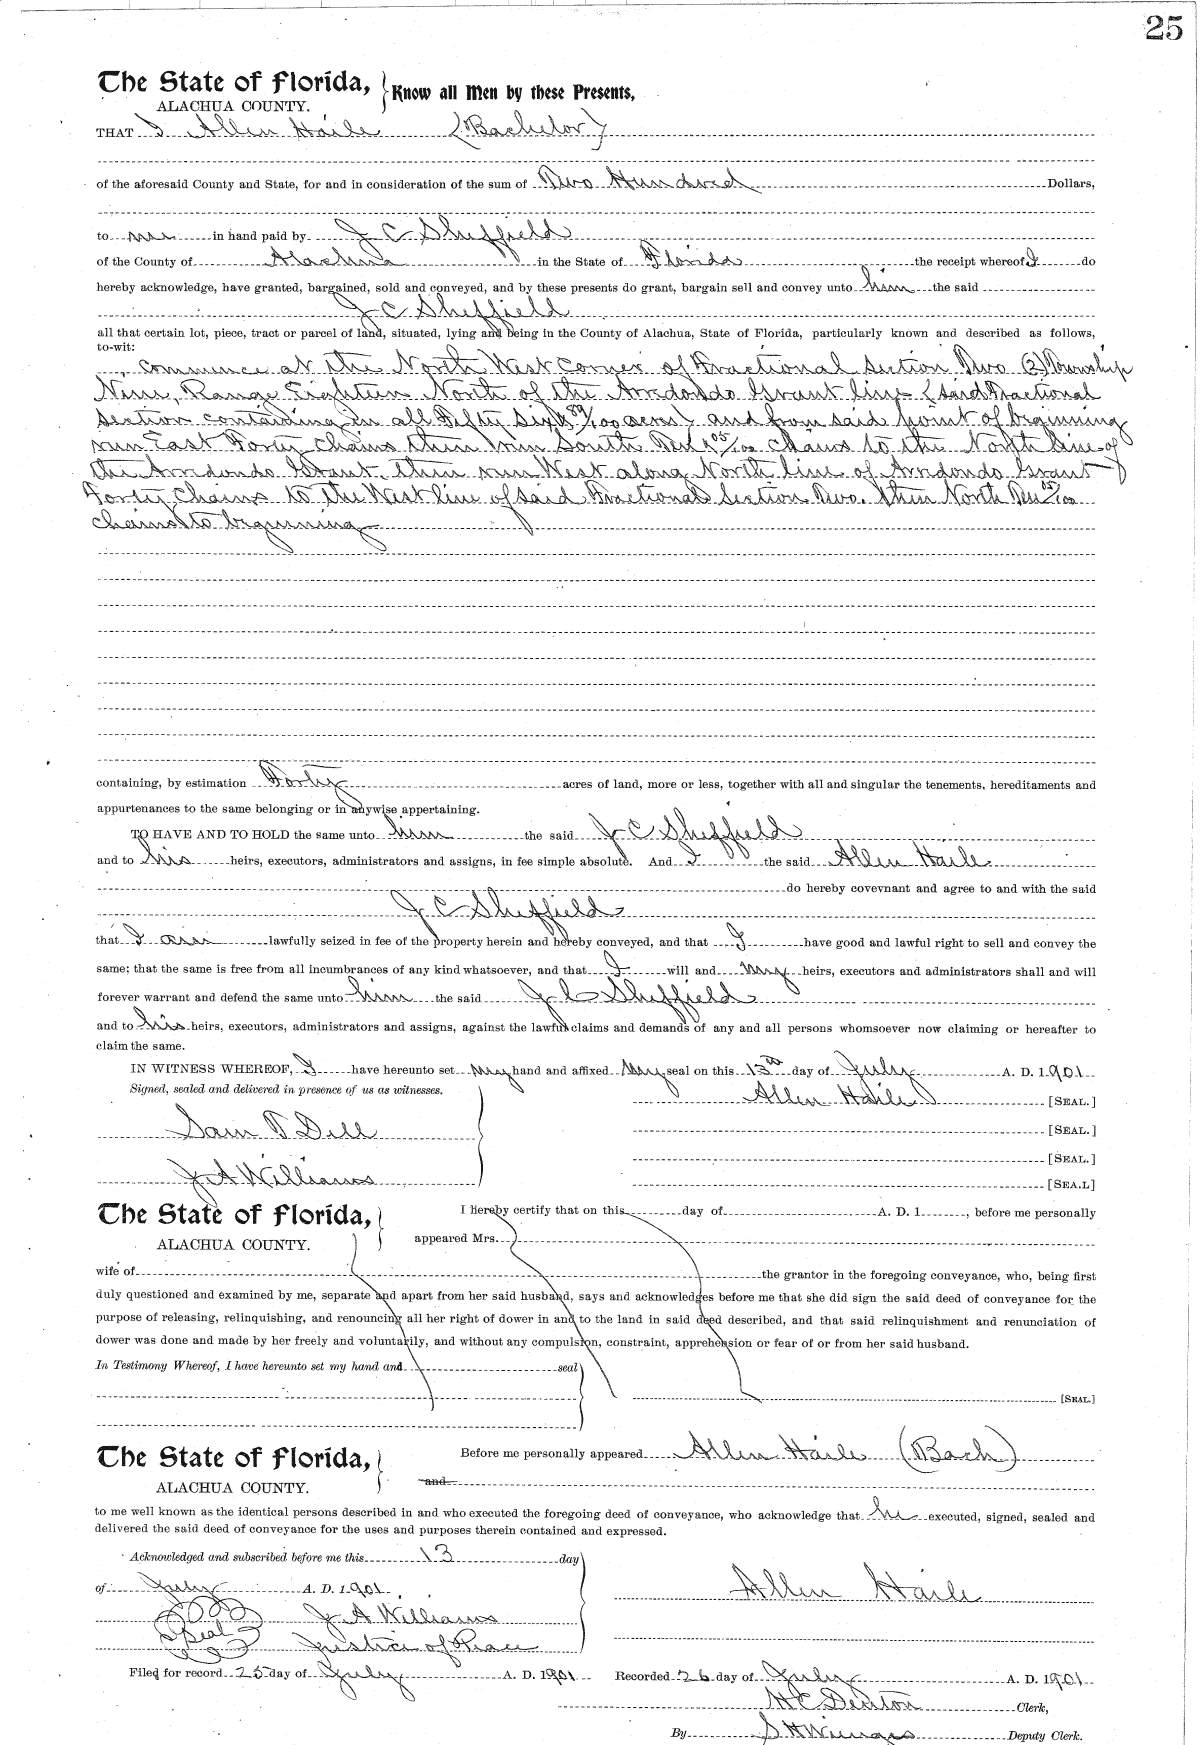 25
The State of Florida, Know all Men by these Presents,
ALACHUA COUNTY.
THAT I Allen Haile (Bachelor)
of the aforesaid County and State, for and in consideration of the sum of Two Hundred Dollars,
to me in hand paid by J C Sheffield
of the County of Alachua in the State of Florida the receipt whereof I do
hereby acknowledge, have granted, bargained, sold and conveyed, and by these presents do grant, bargain sell and convey unto him the said
J C Sheffield
all that certain lot, piece, tract or parcel of land, situated, lying and being in the County of Alachua, State of Florida, particularly known and described as follows,
to-wit:
Commence at the North West Corner of Fractional Section Two (2) Township
Nine, Range Eighteen North of the Arredondo Grant line (said Fractional
Section containing in all Fifty Six 89/100 acres) and from said point of beginning
run East Forty Chains then run South Ten 05/100 chains to the North line of
the Arredondo Grant, then run West along North line of Arredondo Grant
Forty Chains to the West line of said Fractional Section Two. then North Ten 05/100
chains to beginning
containing, by estimation Forty acres of land, more or less, together with all and singular the tenements, hereditaments and
appurtenances to the same belonging or in anywise appertaining.
TO HAVE AND TO HOLD the same unto him the said J C Sheffield
and to his heirs, executors, administrators and assigns, in fee simple absolute. And I the said Allen Haile
do hereby covevnant and agree to and with the said
J C Sheffield
that I am lawfully seized in fee of the property herein and hereby conveyed, and that I have good and lawful right to sell and convey the
same; that the same is free from all incumbrances of any kind whatsoever, and that I will and my heirs, executors and administrators shall and will
forever warrant and defend the same unto him the said J C Sheffield
and to his heirs, executors, administrators and assigns, against the lawful claims and demands of any and all persons whomsoever now claiming or hereafter to
claim the same.
IN WITNESS WHEREOF, I have hereunto set my hand and affixed my seal on this 13th day of July A. D. 1901
Signed, sealed and delivered in presence of us as witnesses. Allen Haile [SEAL.]
Sam T Dell [SEAL.]
[SEAL.]
J A Williams [SEA.L]
The State of Florida, I hereby certify that on this day of A. D. 1 , before me personally
ALACHUA COUNTY. appeared Mrs.
wife of the grantor in the foregoing conveyance, who, being first
duly questioned and examined by me, separate and apart from her said husband, says and acknowledges before me that she did sign the said deed of conveyance for the
purpose of releasing, relinquishing, and renouncing all her right of dower in and to the land in said deed described, and that said relinquishment and renunciation of
dower was done and made by her freely and voluntarily, and without any compulsion, constraint, apprehension or fear of or from her said husband.
In Testimony Whereof, I have hereunto set my hand and seal
[SEAL.]
The State of Florida, Before me personally appeared Allen Haile (Bach)
ALACHUA COUNTY. and
to me well known as the identical persons described in and who executed the foregoing deed of conveyance, who acknowledge that he executed, signed, sealed and
delivered the said deed of conveyance for the uses and purposes therein contained and expressed.
Acknowledged and subscribed before me this 13 day
of July A. D. 1901. Allen Haile
J A Williams
Seal Justice of Peace
Filed for record 25 day of July A. D. 1901 Recorded 26 day of July A. D. 1901
H C Denton Clerk,
By S H Wienges Deputy Clerk.